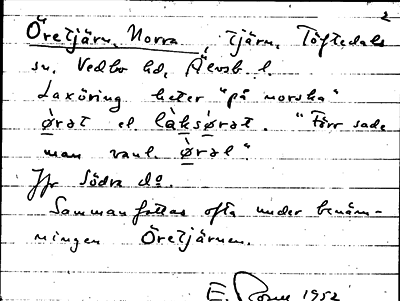 2
Öretjärn, Norra, tjärn, Töftedals
sn. Vedbo hd, Älvsb. l.
Laxöring heter "på norska"
ørət el. làksørət. "Förr sade
man vanl. ørət".
Jfr Södra do.
Sammanfattas ofta under benäm-
ningen Öretjärnen.
E. 1952